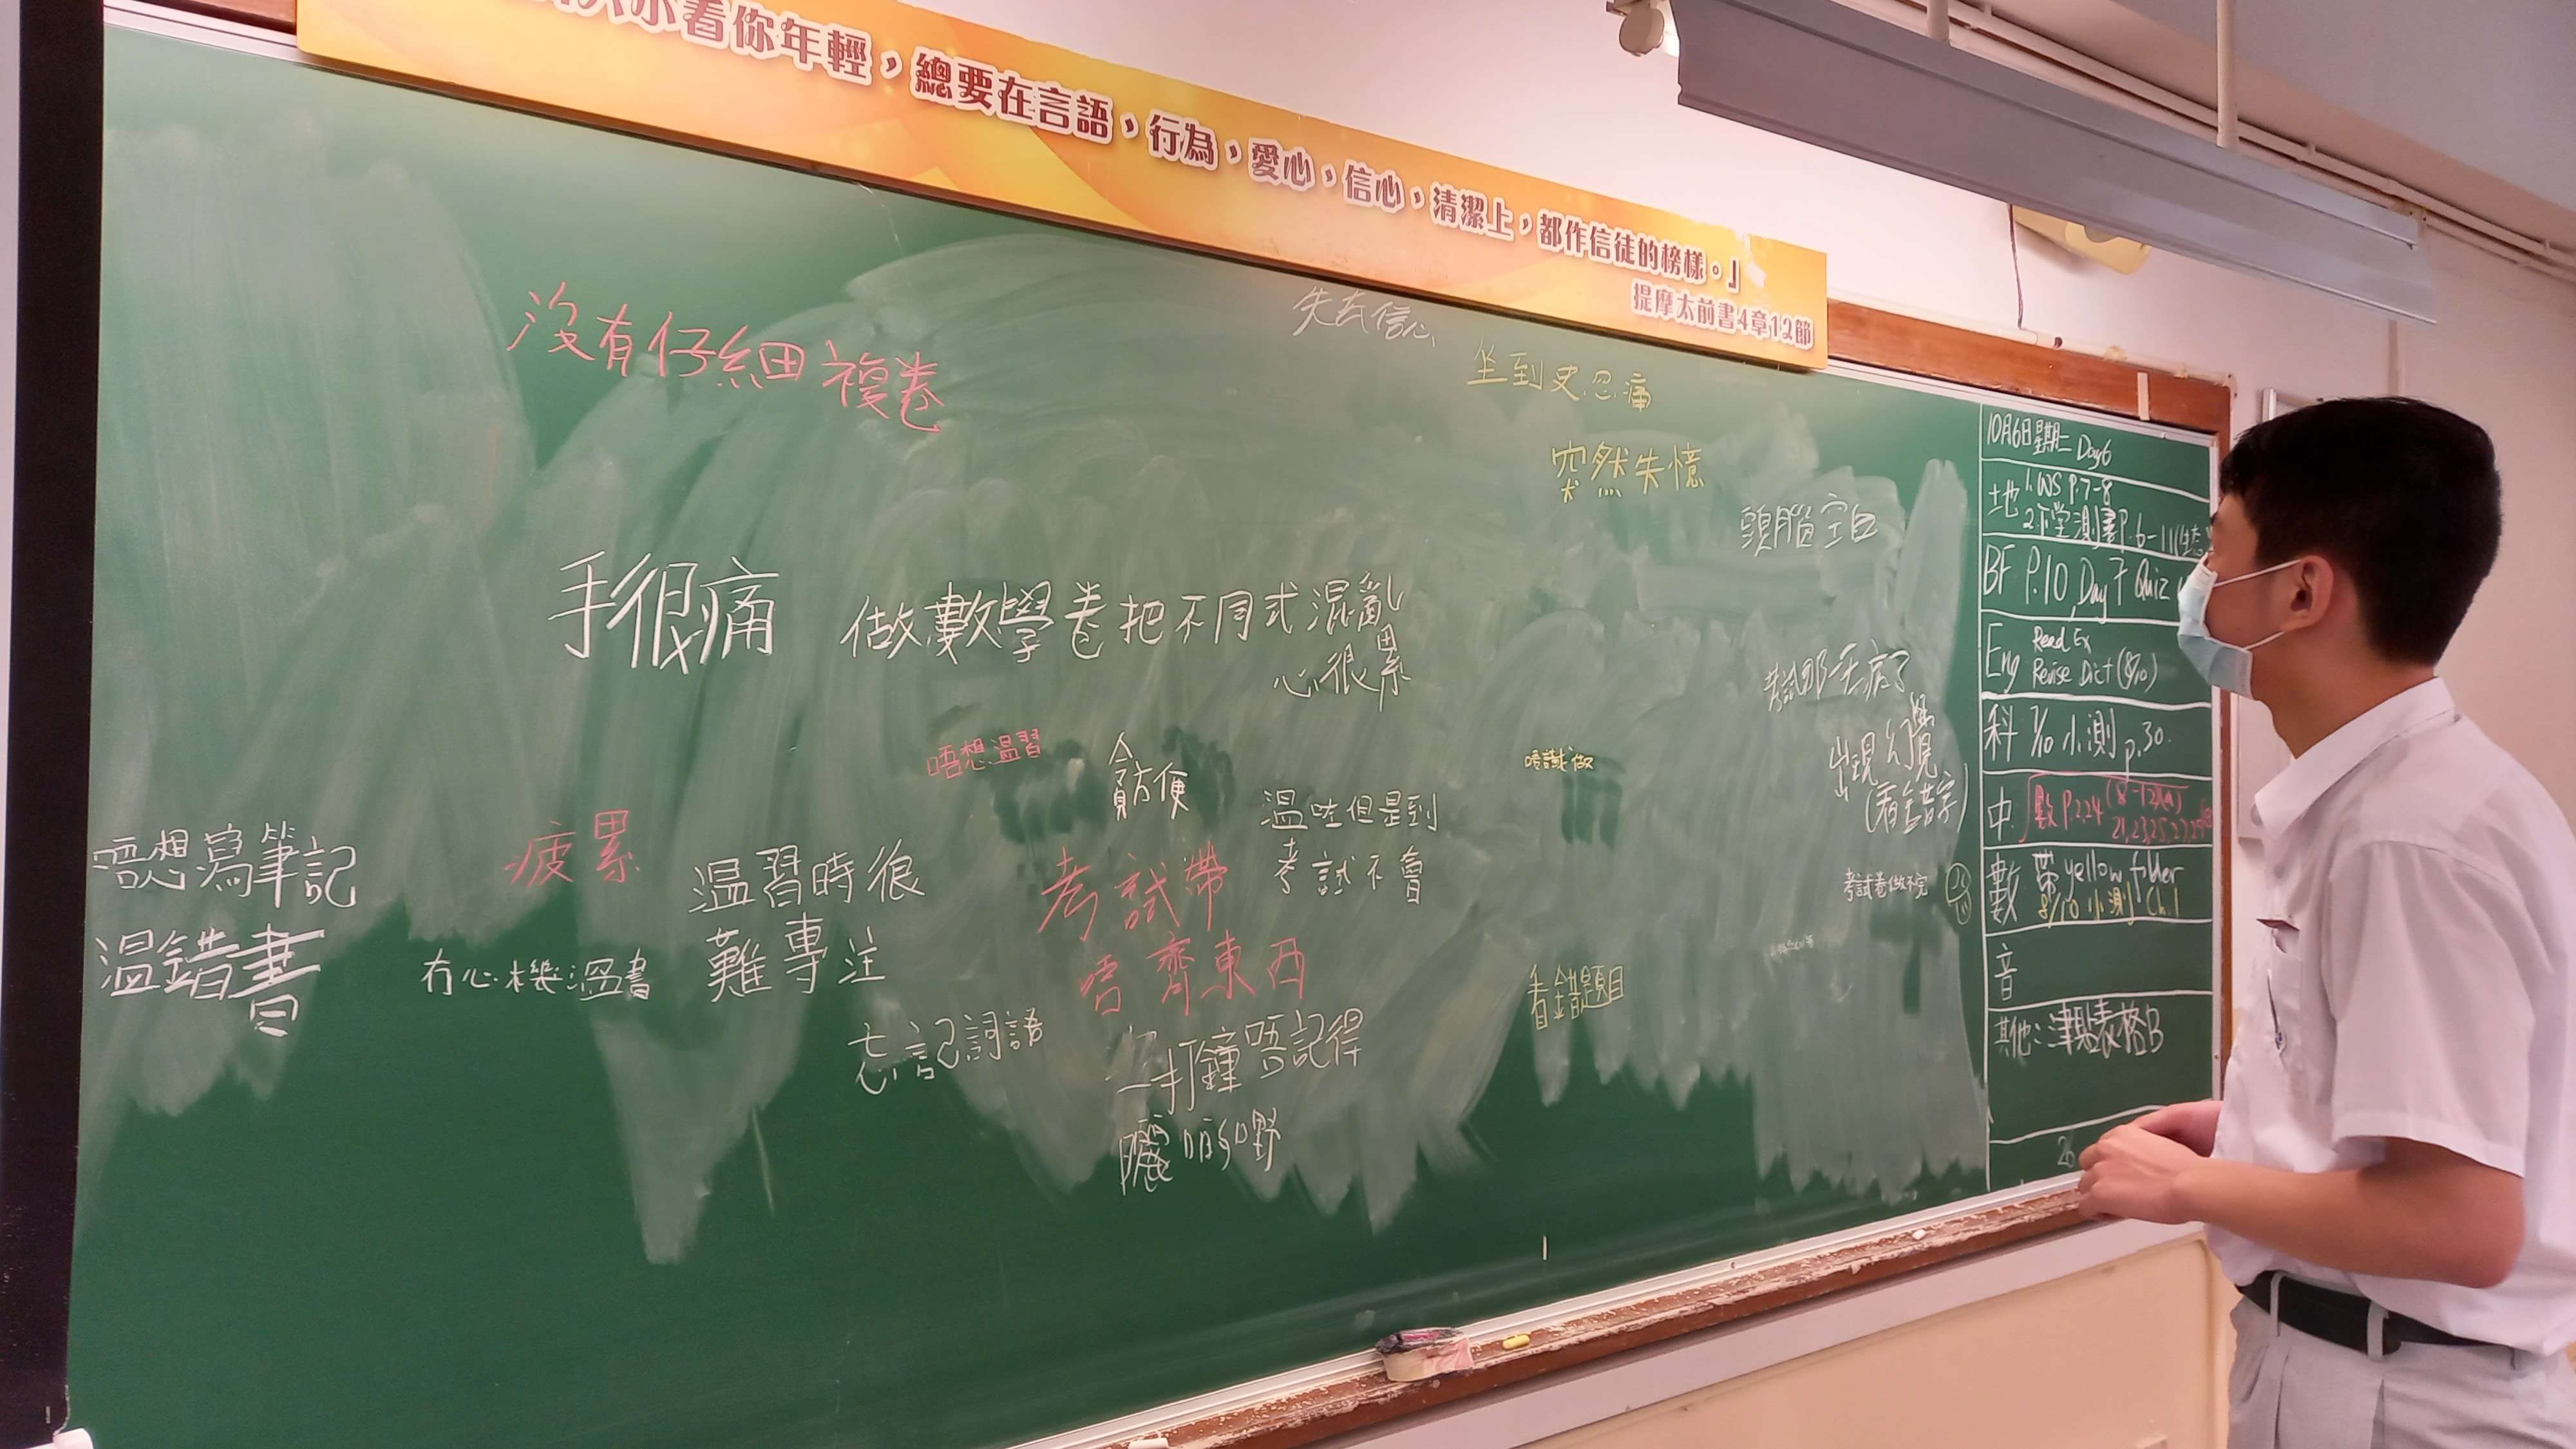 看你年輕，總要在言語，行為，愛心，信心，清潔上，都作信徒的榜樣。」
提摩太前書4章12節
失去信心
沒有仔細複卷
坐到史忍痛
突然失憶
頭腦空白
手很痛
做數學卷把不同式混亂
心很累
考試那天病了
出現幻覺
(看錯字)
唔想溫習
貪方便
唔識做
溫咗但是到
考試不會
唔想寫筆記
溫錯書
疲累
冇心機溫書
溫習時很
難專注
考試帶
唔齊東西
考試卷做不完
看錯題目
忘記詞語
一打鐘唔記得
曬啲野
10月6日星期二 Day6
地 1. WS P.7-8
2. 下堂測書P.6-11
BF P.10, Day 7 Quiz
Eng Read Ex
Revise Dict (8/10)
科 7/10 小測 p.30.
中
數 P.224
數 帶 yellow folder
8/10 小測 Ch.1
音
其他：津貼表格B
26